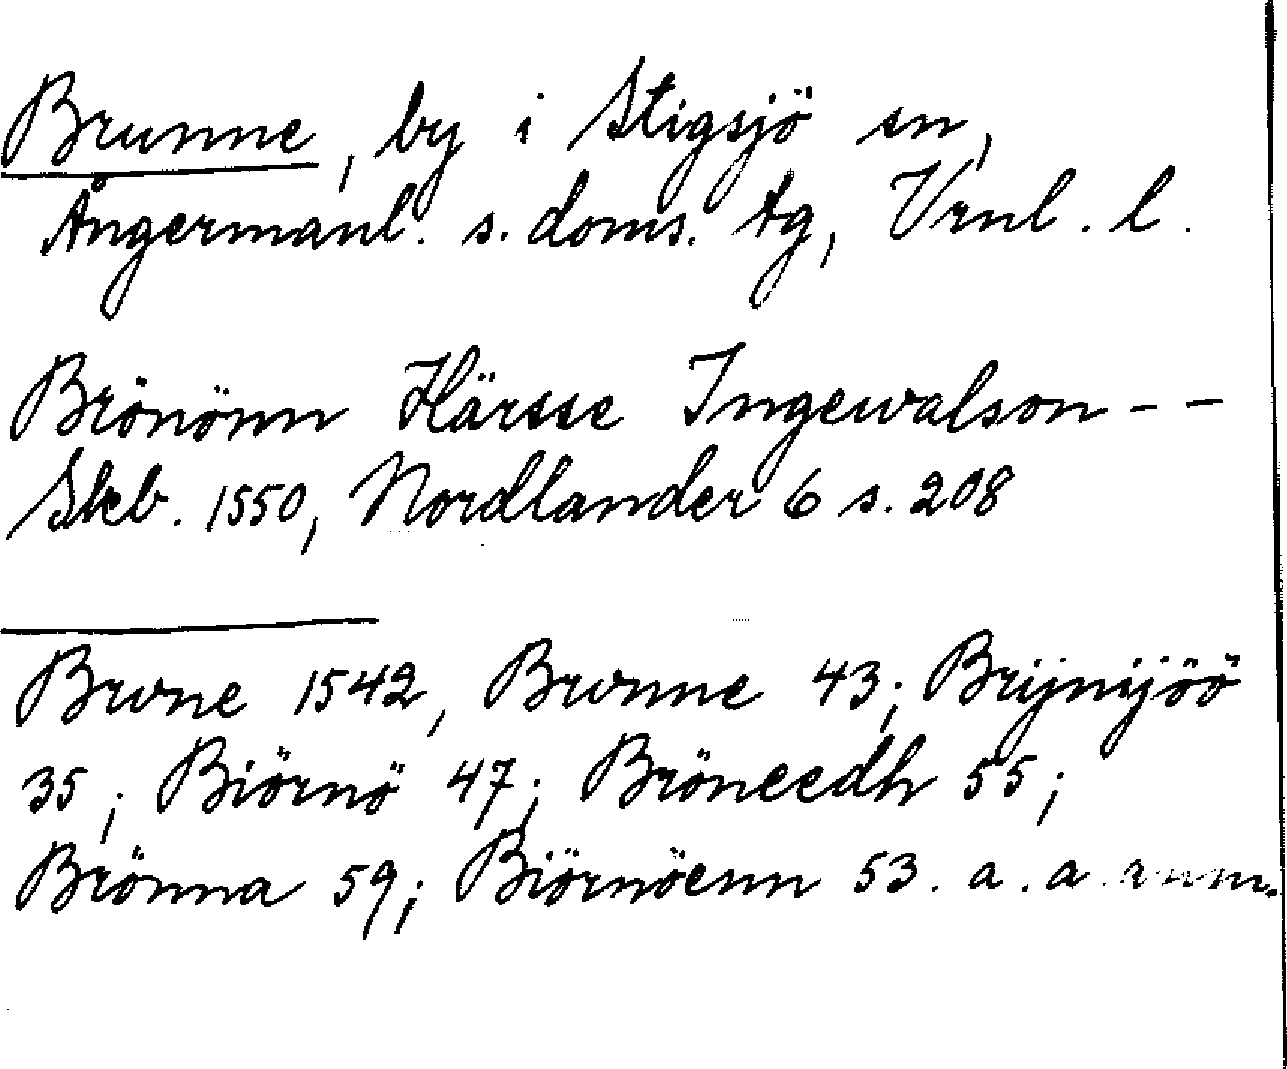 Brunne, by i Stigsjö sn,
Ångermanl. s. doms. tg, Vrnl. l.
Brönönn Härsse Ingewalson - -
Skb. 1550, Nordlander 6 s. 208
Brvne 1542, Brvnne 43; Brijnijöö
35; Biörnö 47; Bröneedh 55;
Brönna 59; Biörnöenn 53. a. a. anm.